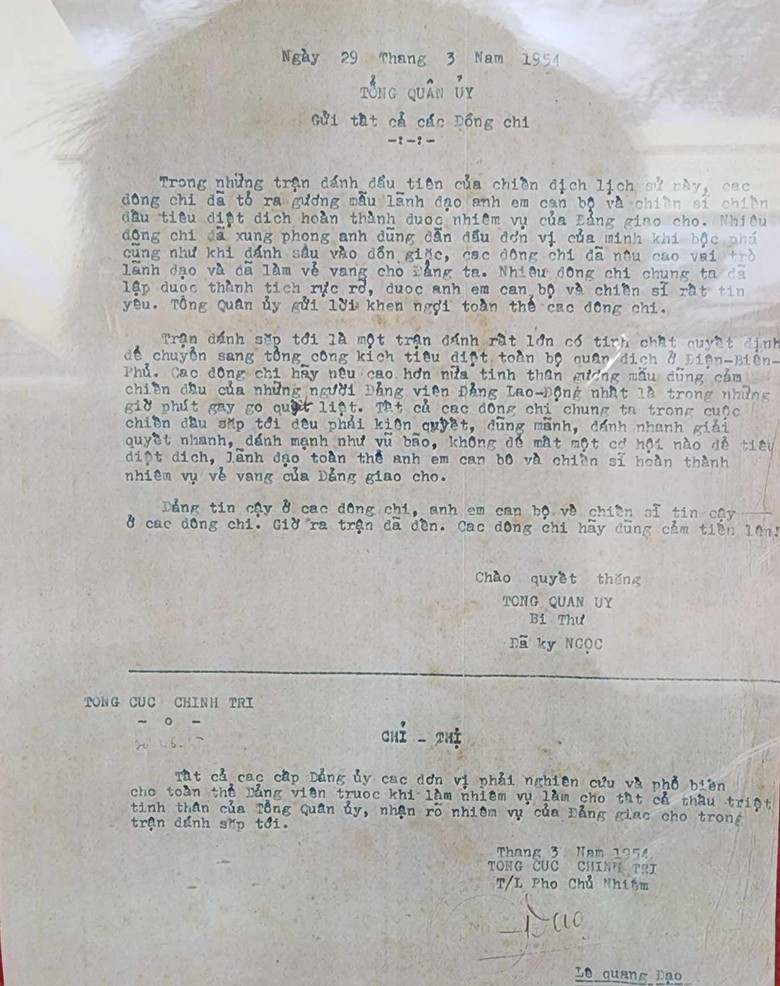 Ngày 29 Thang 3 Nam 1954
TỔNG QUÂN ỦY
Gửi tất cả các Đồng chi
-:-:-
Trong những trận đánh đầu tiên của chiến dịch lịch sử này, cac
đông chi đã tỏ ra gương mẫu lãnh đạo anh em can bộ và chiến sĩ chiến
đấu tiêu diệt dich hoàn thành duoc nhiệm vụ của Đảng giao cho. Nhiều
đông chi đã xung phong anh dũng dẫn đầu đơn vị của minh khi bộc phá
cũng như khi đánh sâu vào đồn giặc, cac đông chi đã nêu cao vai trò
lãnh đạo và đã làm vẻ vang cho Đảng ta. Nhiều đông chi chung ta đã
lập duoc thành tich rực rỡ, duoc anh em can bộ và chiến sĩ rất tin
yêu. Tổng Quân ủy gửi lời khen ngợi toàn thể cac đông chi.
Trận đánh sắp tới là một trận đánh rất lớn có tinh chất quyết định
để chuyển sang tổng công kich tiêu diệt toàn bộ quân dich ở Điện-Biên-
Phủ. Cac đông chi hãy nêu cao hơn nữa tinh thân gương mẫu dũng cảm
chiến đấu của những người Đảng viên Đảng Lao-Động nhất là trong những
giờ phút gay go quyết liệt. Tất cả cac đông chi chung ta trong cuộc
chiến đấu sắp tới đều phải kiên quyết, dũng mãnh, đánh nhanh giải
quyết nhanh, đánh mạnh như vũ bão, không để mất một cơ hội nào để tiêu
diệt dich, lãnh đạo toàn thể anh em can bô và chiến sĩ hoàn thành
nhiệm vụ vẻ vang của Đảng giao cho.
Đảng tin cậy ở cac đông chi, anh em can bộ và chiến sĩ tin cậy
ở cac đông chi. Giờ ra trận đã đến. Cac đông chi hãy dũng cảm tiến lên!
Chào quyết thắng
TONG QUAN UY
Bi Thư
Đã ky NGỌC
TONG CUC CHINH TRI
- o -
CHỈ - THỊ
Tất cả cac cấp Đảng ủy cac đơn vị phải nghiên cứu và phổ biến
cho toàn thể Đảng viên truoc khi làm nhiệm vụ làm cho tất cả thấu triệt
tinh thân của Tổng Quân ủy, nhận rõ nhiệm vụ của Đảng giao cho trong
trận đánh sắp tới.
Thang 3 Nam 1954
TONG CUC CHINH TRI
T/L Pho Chủ Nhiệm
Lê quang Đạo